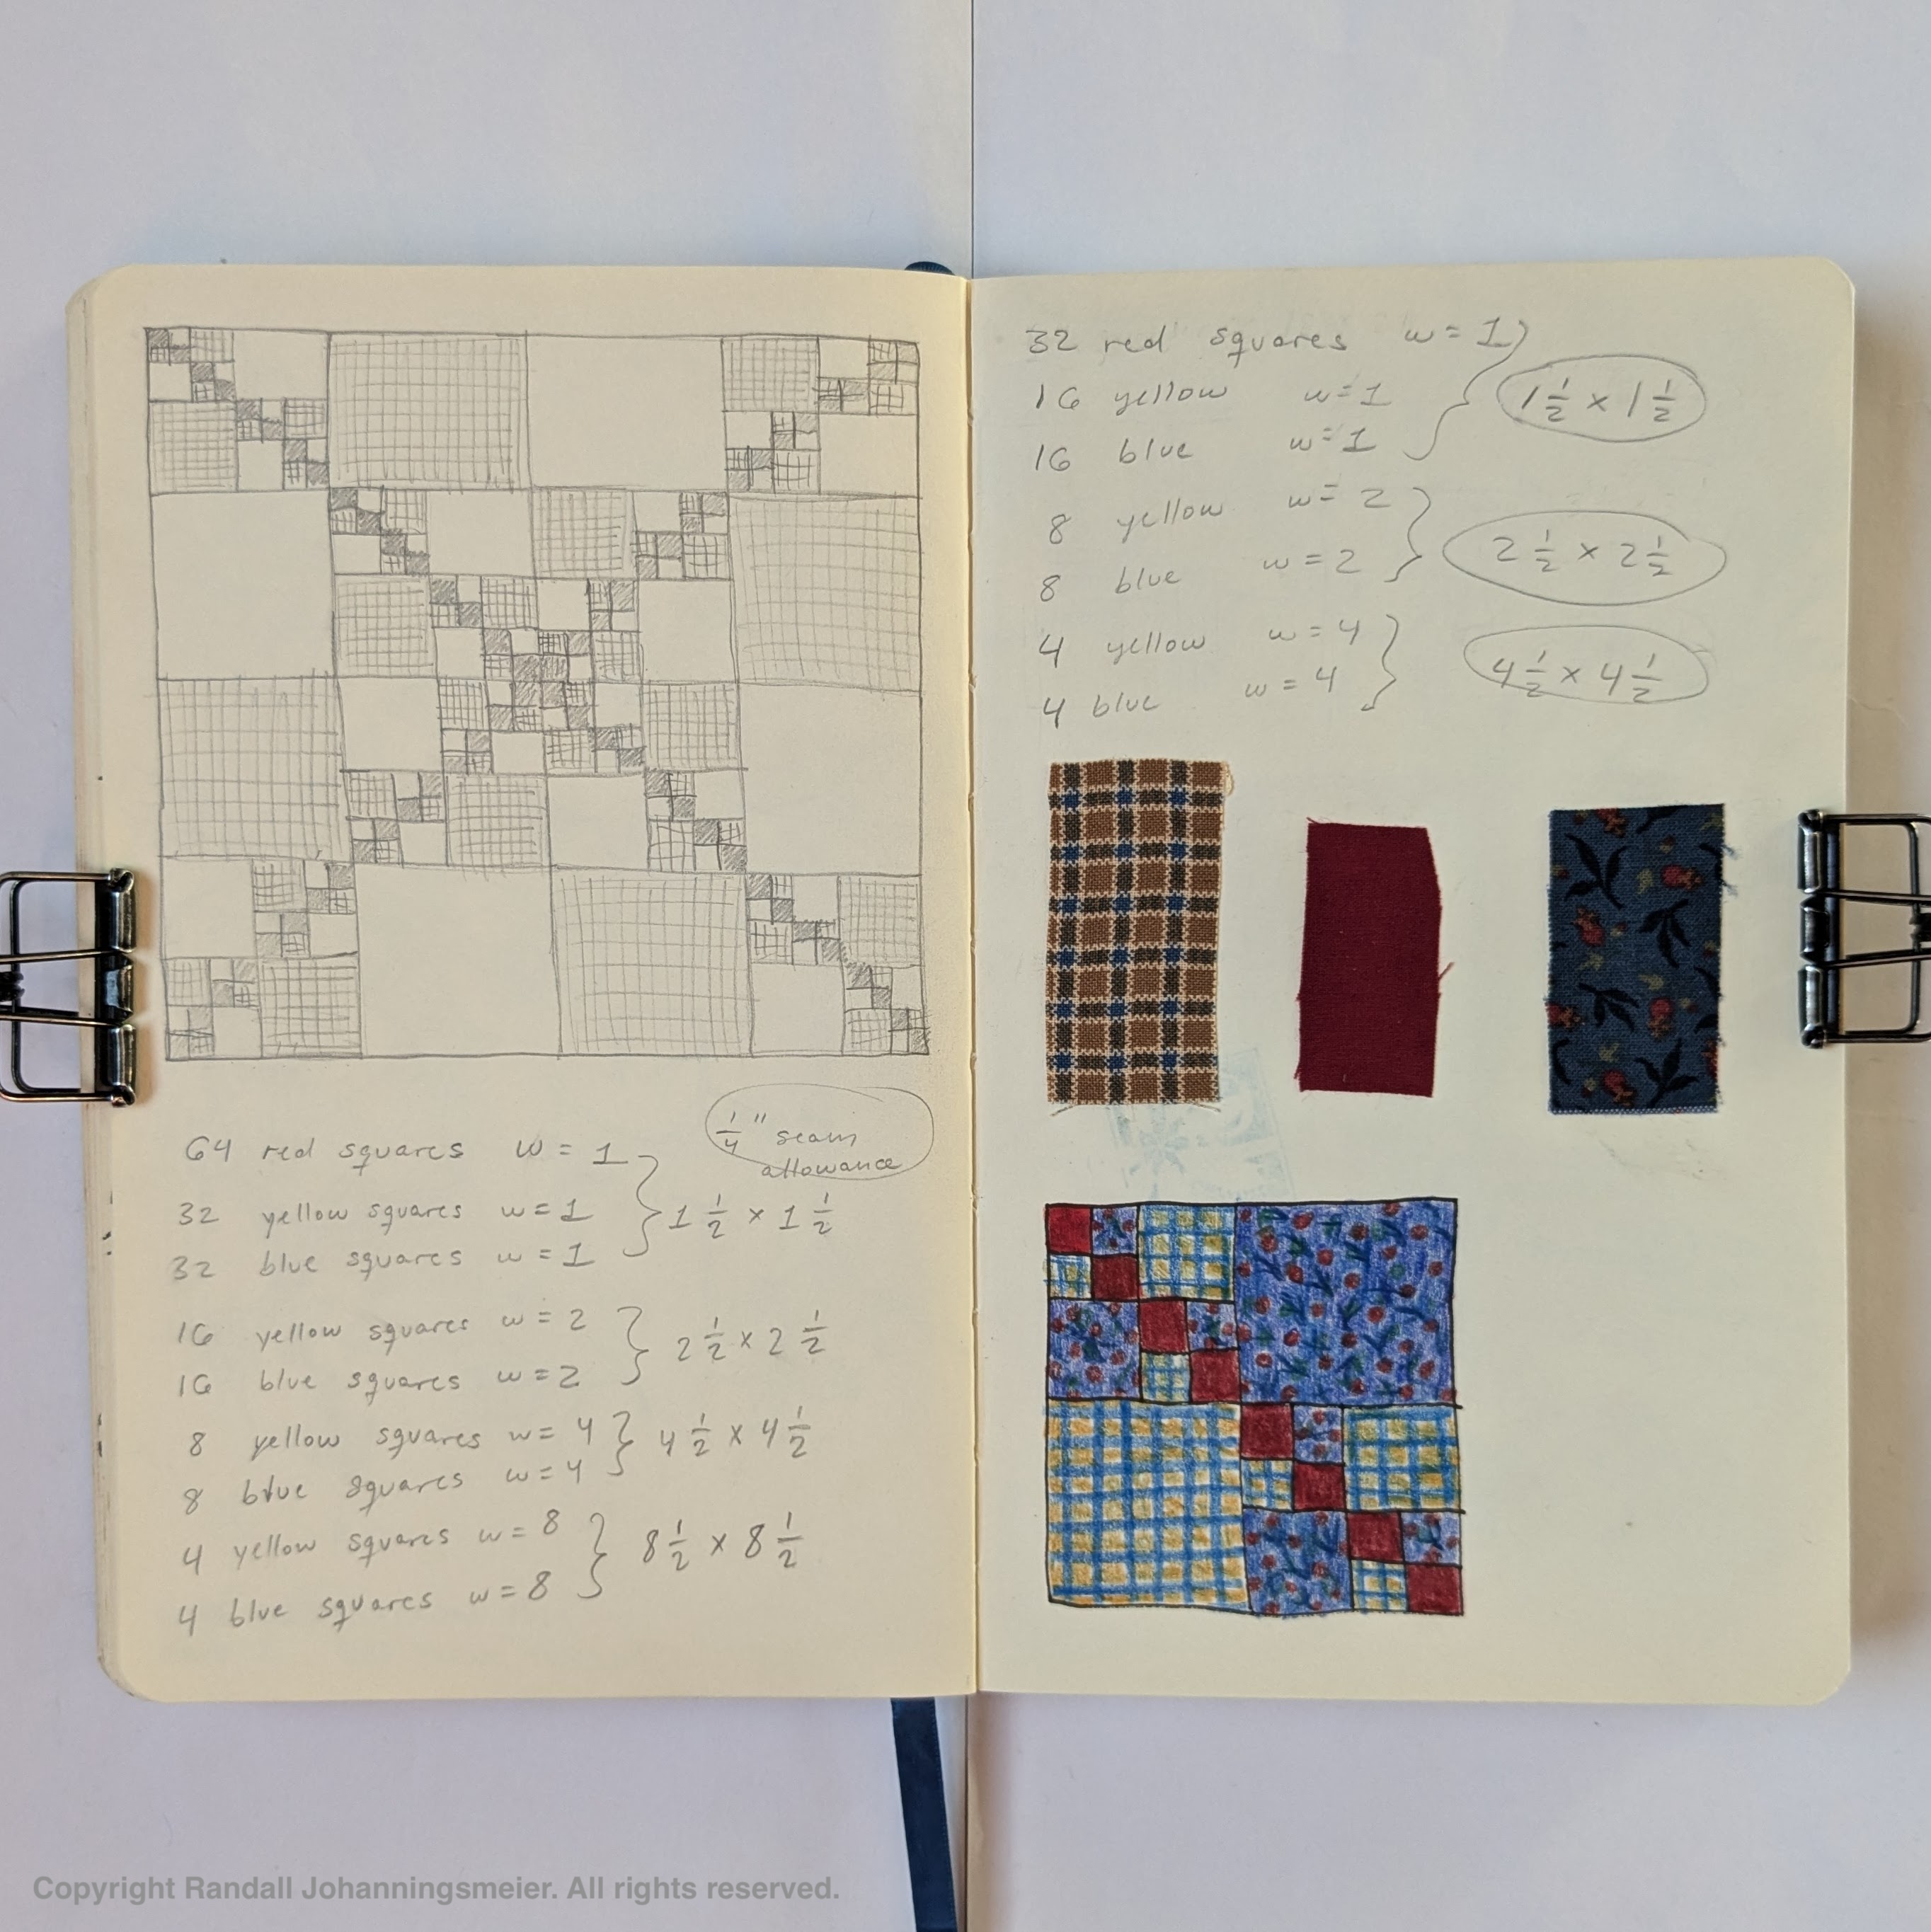 64 red squares w = 1
32 yellow squares w = 1
32 blue squares w = 1
1 1/2 x 1 1/2
1/4" seam
allowance
16 yellow squares w = 2
16 blue squares w = 2
2 1/2 x 2 1/2
8 yellow squares w = 4
8 blue squares w = 4
4 1/2 x 4 1/2
4 yellow squares w = 8
4 blue squares w = 8
8 1/2 x 8 1/2
32 red squares w = 1
16 yellow w = 1
16 blue w = 1
1 1/2 x 1 1/2
8 yellow w = 2
8 blue w = 2
2 1/2 x 2 1/2
4 yellow w = 4
4 blue w = 4
4 1/2 x 4 1/2
Copyright Randall Johanningsmeier. All rights reserved.